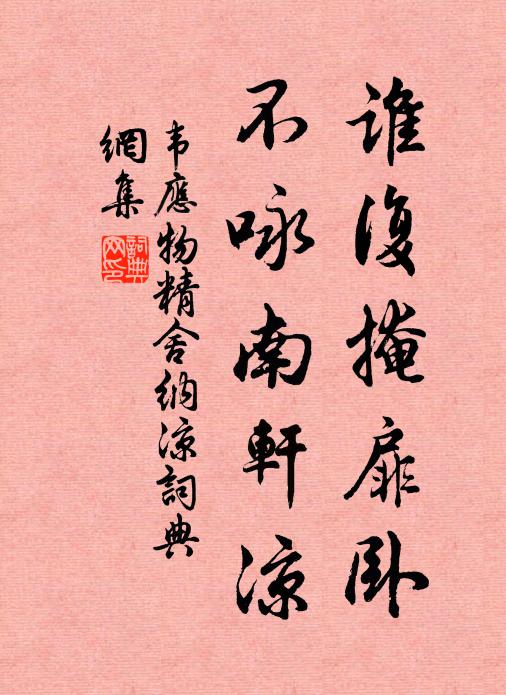 誰復掩扉臥
不咏南軒涼
韦應物精舍納涼詞典
網集
詞典
网印